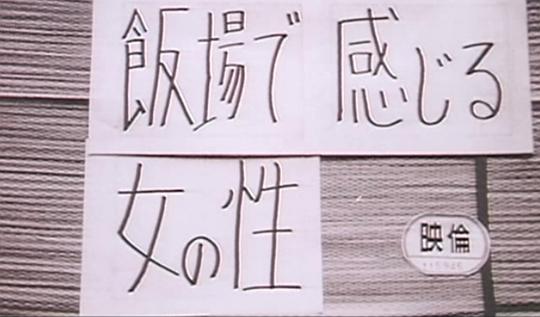 飯場で 感じる
女の性
映倫